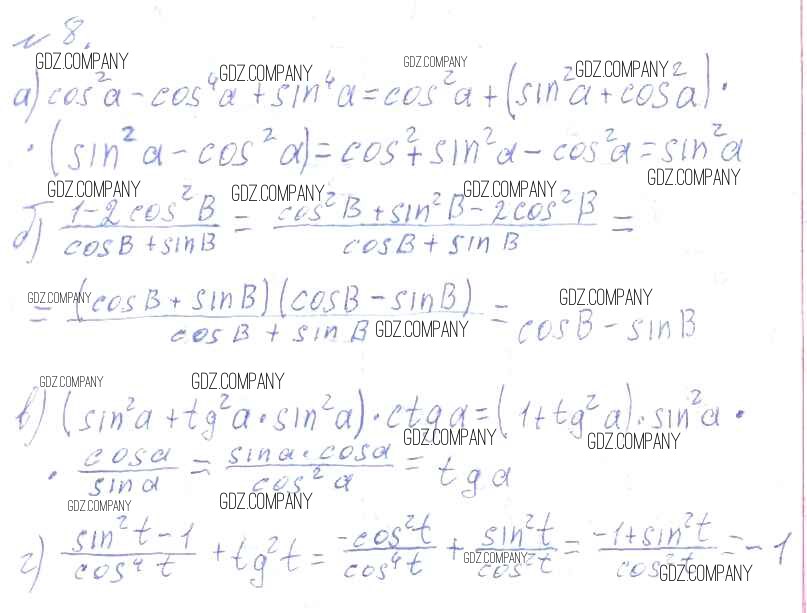 № 8.
GDZ.COMPANY GDZ.COMPANY GDZ.COMPANY GDZ.COMPANY
а) cos²a − cos⁴a + sin⁴a = cos²a + (sin²a + cos a)² ·
· (sin²a − cos²a) = cos² + sin²a − cos²a = sin²a
GDZ.COMPANY GDZ.COMPANY GDZ.COMPANY GDZ.COMPANY
б) (1 − 2cos²B)/(cosB + sinB) = (cos²B + sin²B − 2cos²B)/(cosB + sinB) =
GDZ.COMPANY GDZ.COMPANY
= (cosB + sinB)(cosB − sinB)/(cosB + sinB) = cosB − sinB
GDZ.COMPANY
GDZ.COMPANY GDZ.COMPANY
в) (sin²a + tg²a · sin²a) · ctg a = (1 + tg²a) · sin²a ·
GDZ.COMPANY GDZ.COMPANY
· cosa/sina = sina · cosa/cos²a = tg a
GDZ.COMPANY GDZ.COMPANY
г) (sin²t − 1)/cos⁴t + tg²t = −cos²t/cos⁴t + sin²t/cos²t = (−1 + sin²t)/cos²t = −1
GDZ.COMPANY GDZ.COMPANY